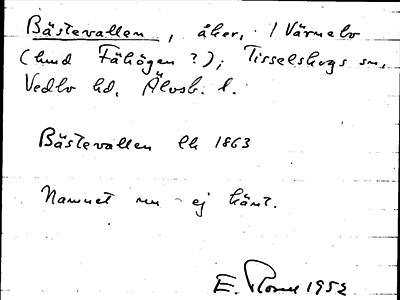 Bästevallen, åker, / Värnebo
(hmd Fähögen ?); Tisselskogs sn,
Vedbo hd, Älvsb. l.
Bästevallen lh 1863
Namnet nu ej känt.
E. 1952